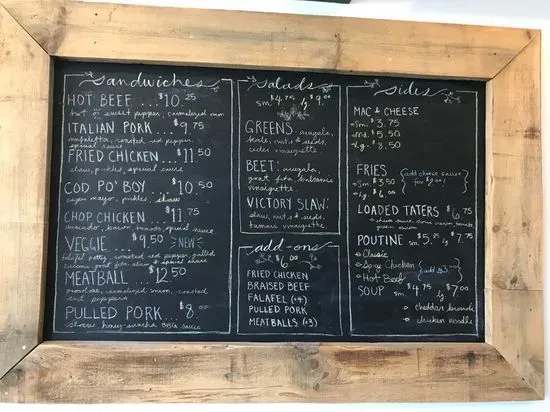 Sandwiches
HOT BEEF ... $10.25
hot or sweet peppers, caramelized onion
ITALIAN PORK ... $9.75
roasted red pepper,
special sauce
FRIED CHICKEN ... $11.50
slaw, pickles, special sauce
COD PO' BOY ... $10.50
cajun mayo, pickles, slaw
CHOP CHICKEN ... $11.75
avocado, bacon, tomato, special sauce
VEGGIE ... $9.50 NEW
falafel patty, roasted red pepper, grilled
goat feta, slaw & special sauce
MEATBALL ... $12.50
provolone, caramelized onion, roasted
red peppers
PULLED PORK ... $8.00
honey-sriracha BBQ sauce
Salads
sm. $4.75 lg $9.00
GREENS: arugula,
kale, nuts & seeds,
cider vinaigrette
BEET: arugula,
goat feta, balsamic
vinaigrette.
VICTORY SLAW:
slaw, nuts & seeds,
tamari vinaigrette.
add-ons
$6.00
FRIED CHICKEN
BRAISED BEEF
FALAFEL (x4)
PULLED PORK
MEATBALLS (x3)
Sides
MAC & CHEESE
Sm. $3.75
Md. $5.50
Lg. $8.50
FRIES (add cheese sauce
Sm $3.50 for $2.00!)
Lg $6.00
LOADED TATERS $6.75
cheese sauce, sour cream, bacon, tomato
green onion
POUTINE $5.25 $7.75
Classic
Spicy Chicken
Hot Beef
SOUP $4.75 $7.00
cheddar broccoli
chicken noodle